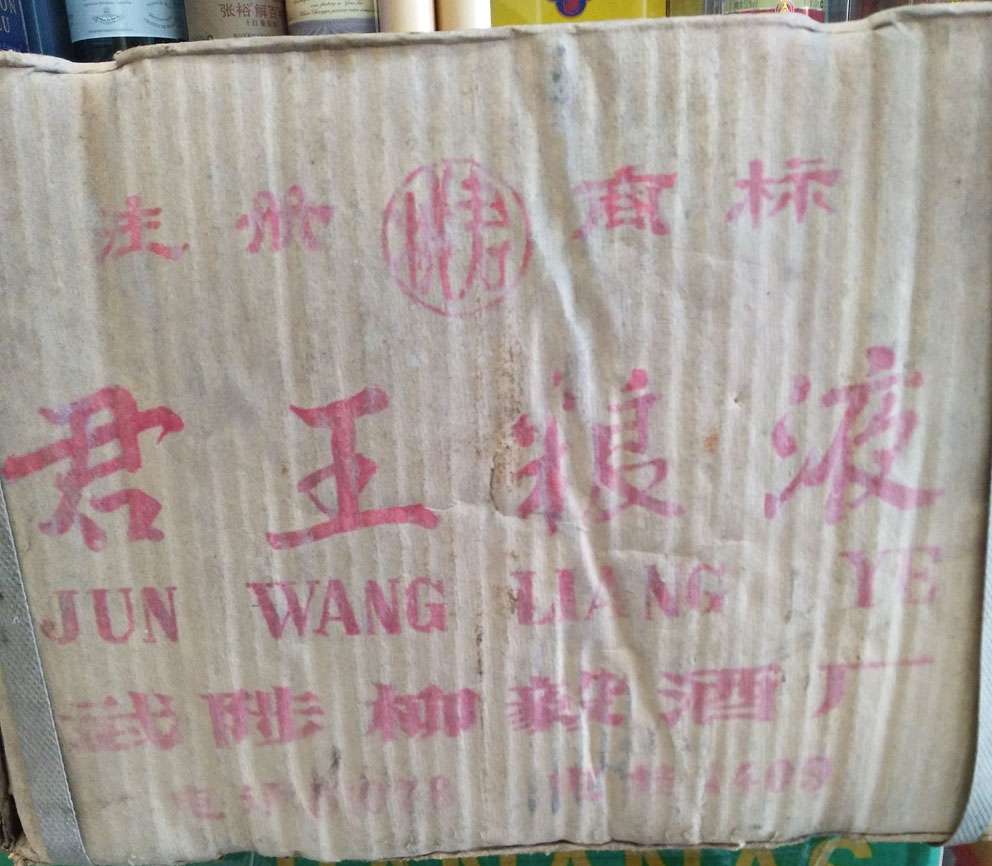 张裕解百
注册 商标
君王粮液
JUN WANG LIANG YE
武陟柳毅酒厂